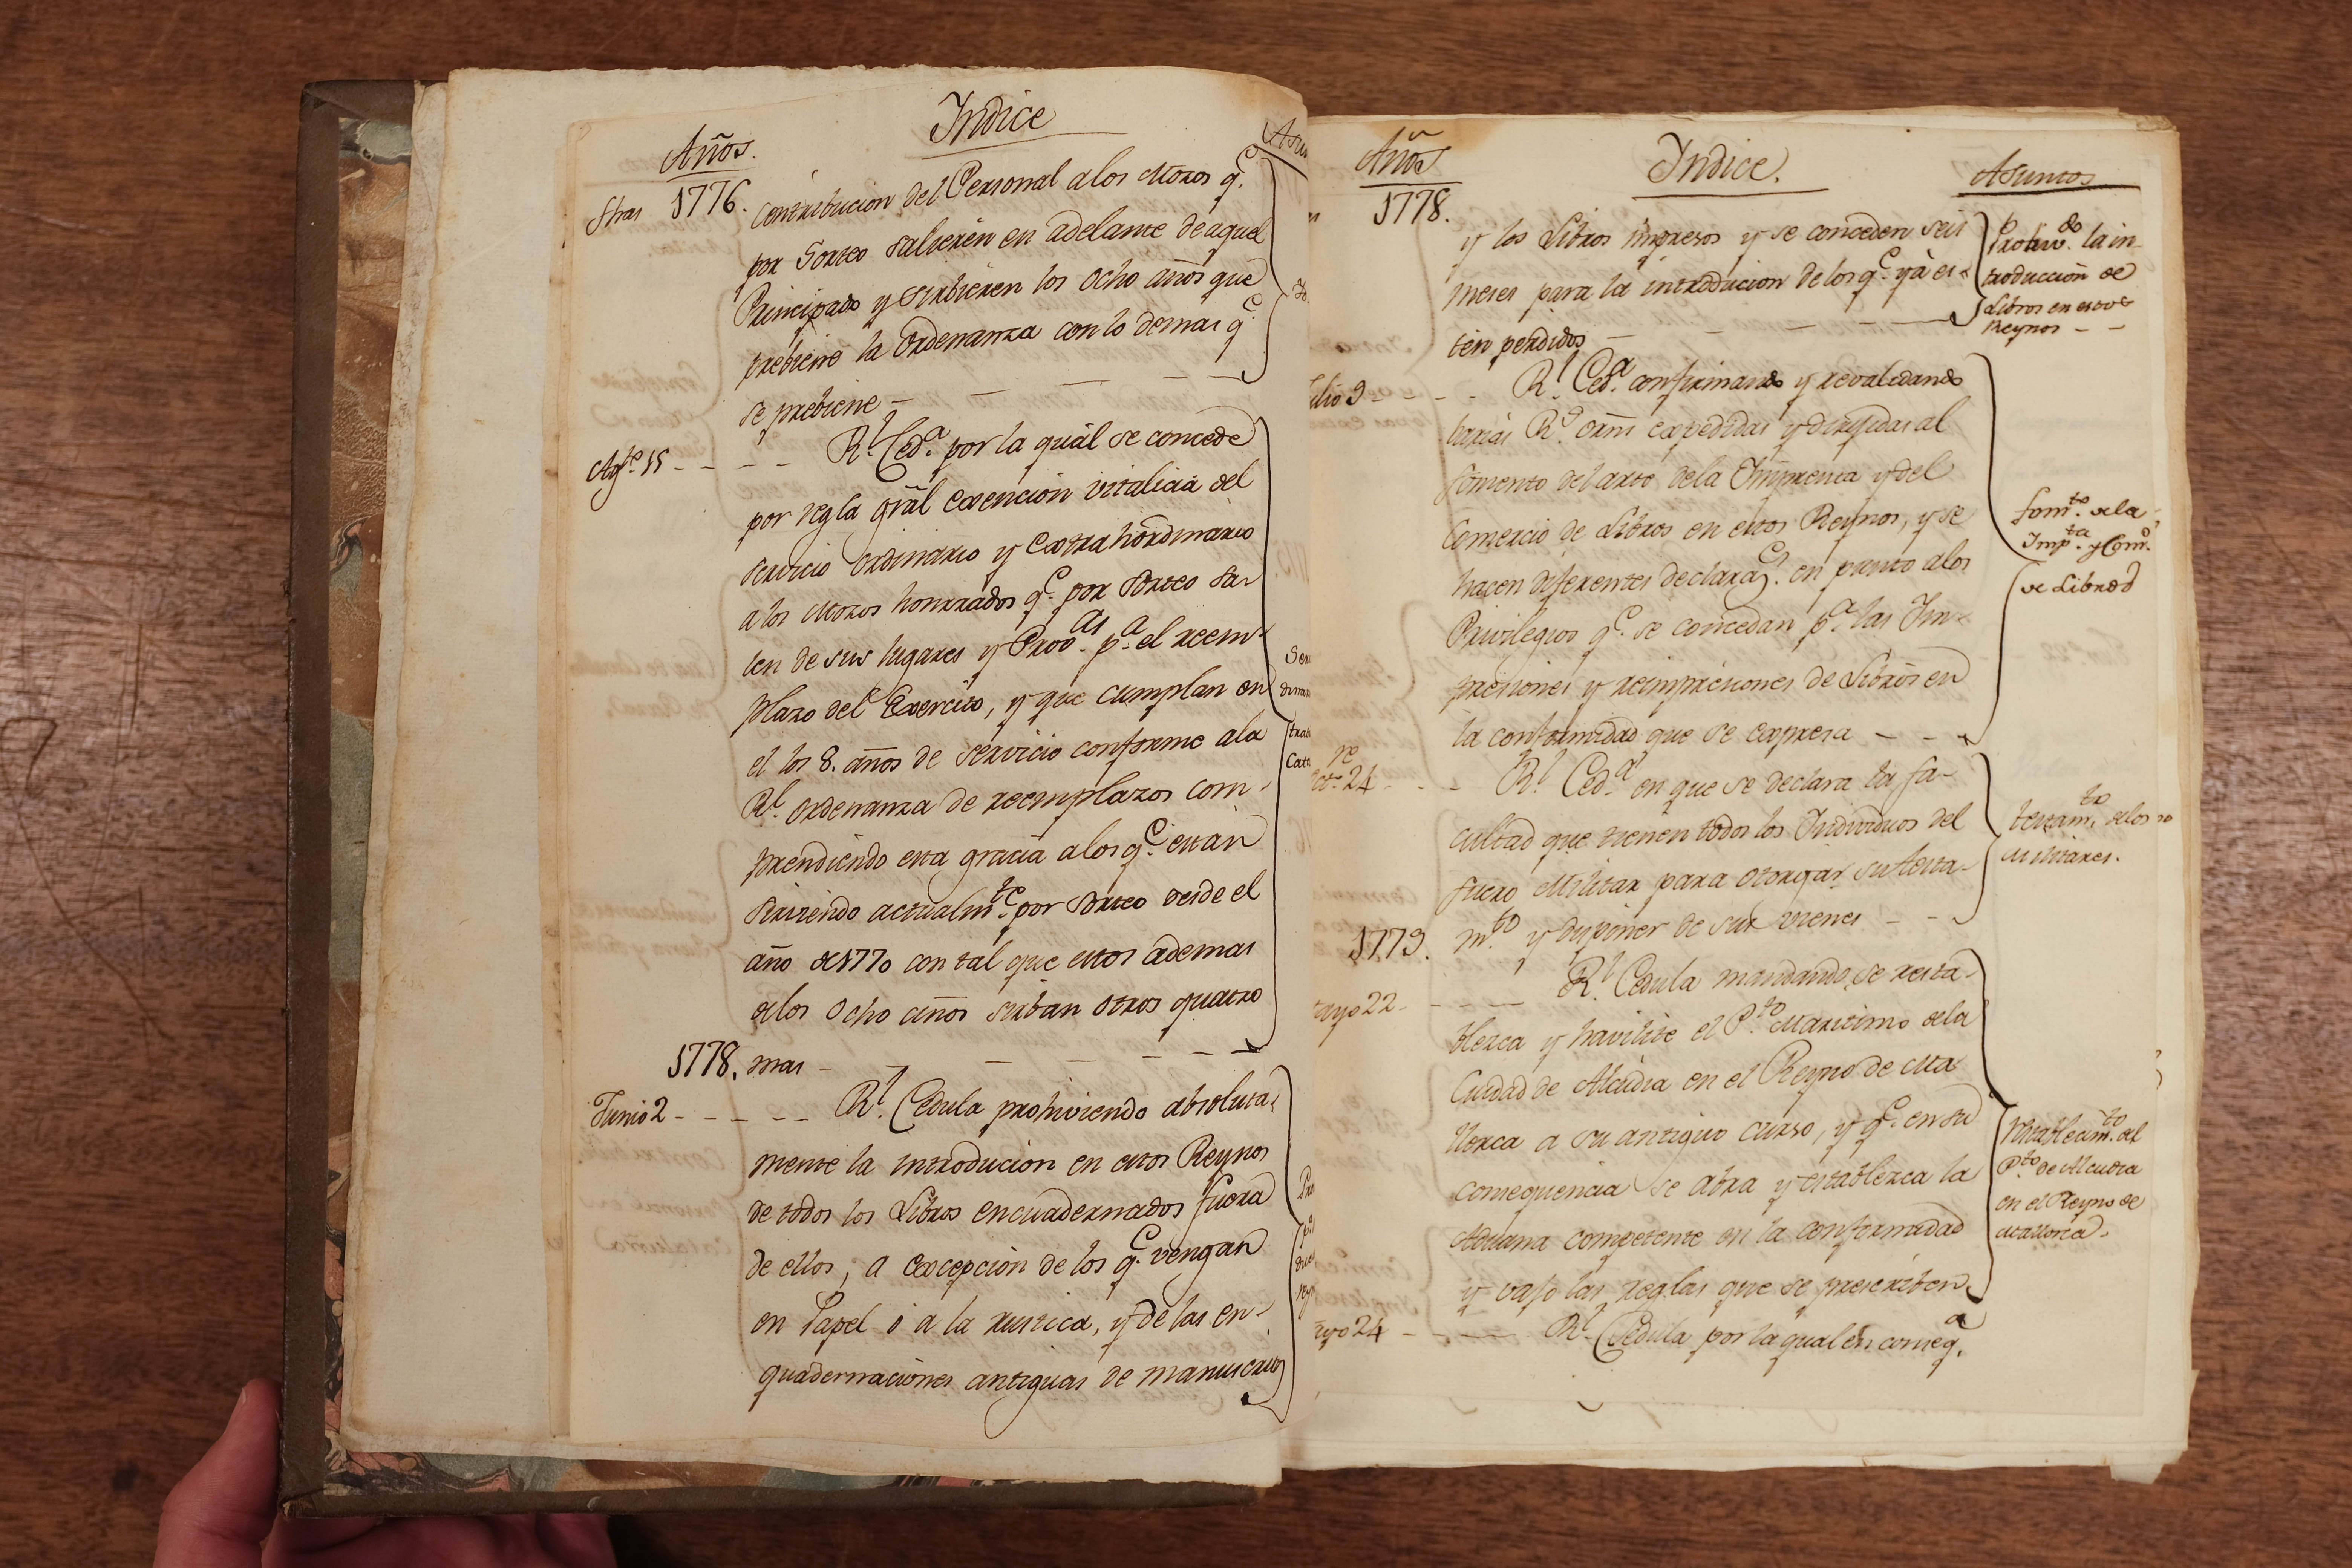 Años.
Indice
1776.
contribucion del Personal a los Mozos q.e
por Sorteo salieren en adelante de aquel
Principado y sirbieren los ocho años que
prebiene la ordenanza con lo demas q.e
se prebiene
Ag.to 15
R.l Ced.a por la quál se concede
por regla grãl exencion vitalicia del
servicio ordinario y extrahordinario
a los Mozos honrrados q.e por sorteo sa-
len de sus lugares y Prov.as p.a el reem-
plazo del Exercito, y que cumplan en
el los 8. años de servicio conforme a la
R.l ordenanza de reemplazos com-
prendiendo esta gracia a los q.e están
sirviendo actualm.te por sorteo desde el
año de 1770 con tal que estos ademas
de los ocho años sirban otros quatro
1778. mas
Junio 2
R.l Cedula prohiviendo absoluta-
mente la introducion en estos Reynos
de todos los Libros encuadernados fuera
de ellos, a excepcion de los q.e vengan
en Papel ó a la rustica, y de las en-
quadernaciones antiguas de manuscritos
Años
Indice.
Asuntos
1778.
y los Libros impresos y se conceden seis
meses para la introducion de los q.e yá es-
ten perdidos
Prohiv.do la in-
troducción de
Libros en estos
Reynos
R.l Ced.a confirmando y revalidando
barias R.s orñs expedidas y dirigidas al
fomento del arte de la Imprenta y del
Comercio de Libros en estos Reynos, y se
hacen diferentes declarac.s en punto a los
Privilegios q.e se concedan p.a las Im-
presiones y reimpresiones de Libros en
la conformidad que se expresa
fom.to de la
Imp.ta y Com.o
de Libros
24
R.l Ced.a en que se declara la fa-
cultad que tienen todos los Individuos del
fuero Militar para otorgar su testa-
m.to y disponer de sus vienes
testam.to de los
Militares.
1779.
22
R.l Cedula mandando se resta-
blezca y havilite el P.to Maritimo de la
Ciudad de Alcudia en el Reyno de Ma
llorca a su antiguo curso, y q.e en su
consequencia se abra y establezca la
Aduana competente en la conformidad
y vajo las reglas que se prescriben
Restablecim.to del
P.to de Alcudia
en el Reyno de
Mallorca.
24
R.l Cedula por la qual en conseq.a